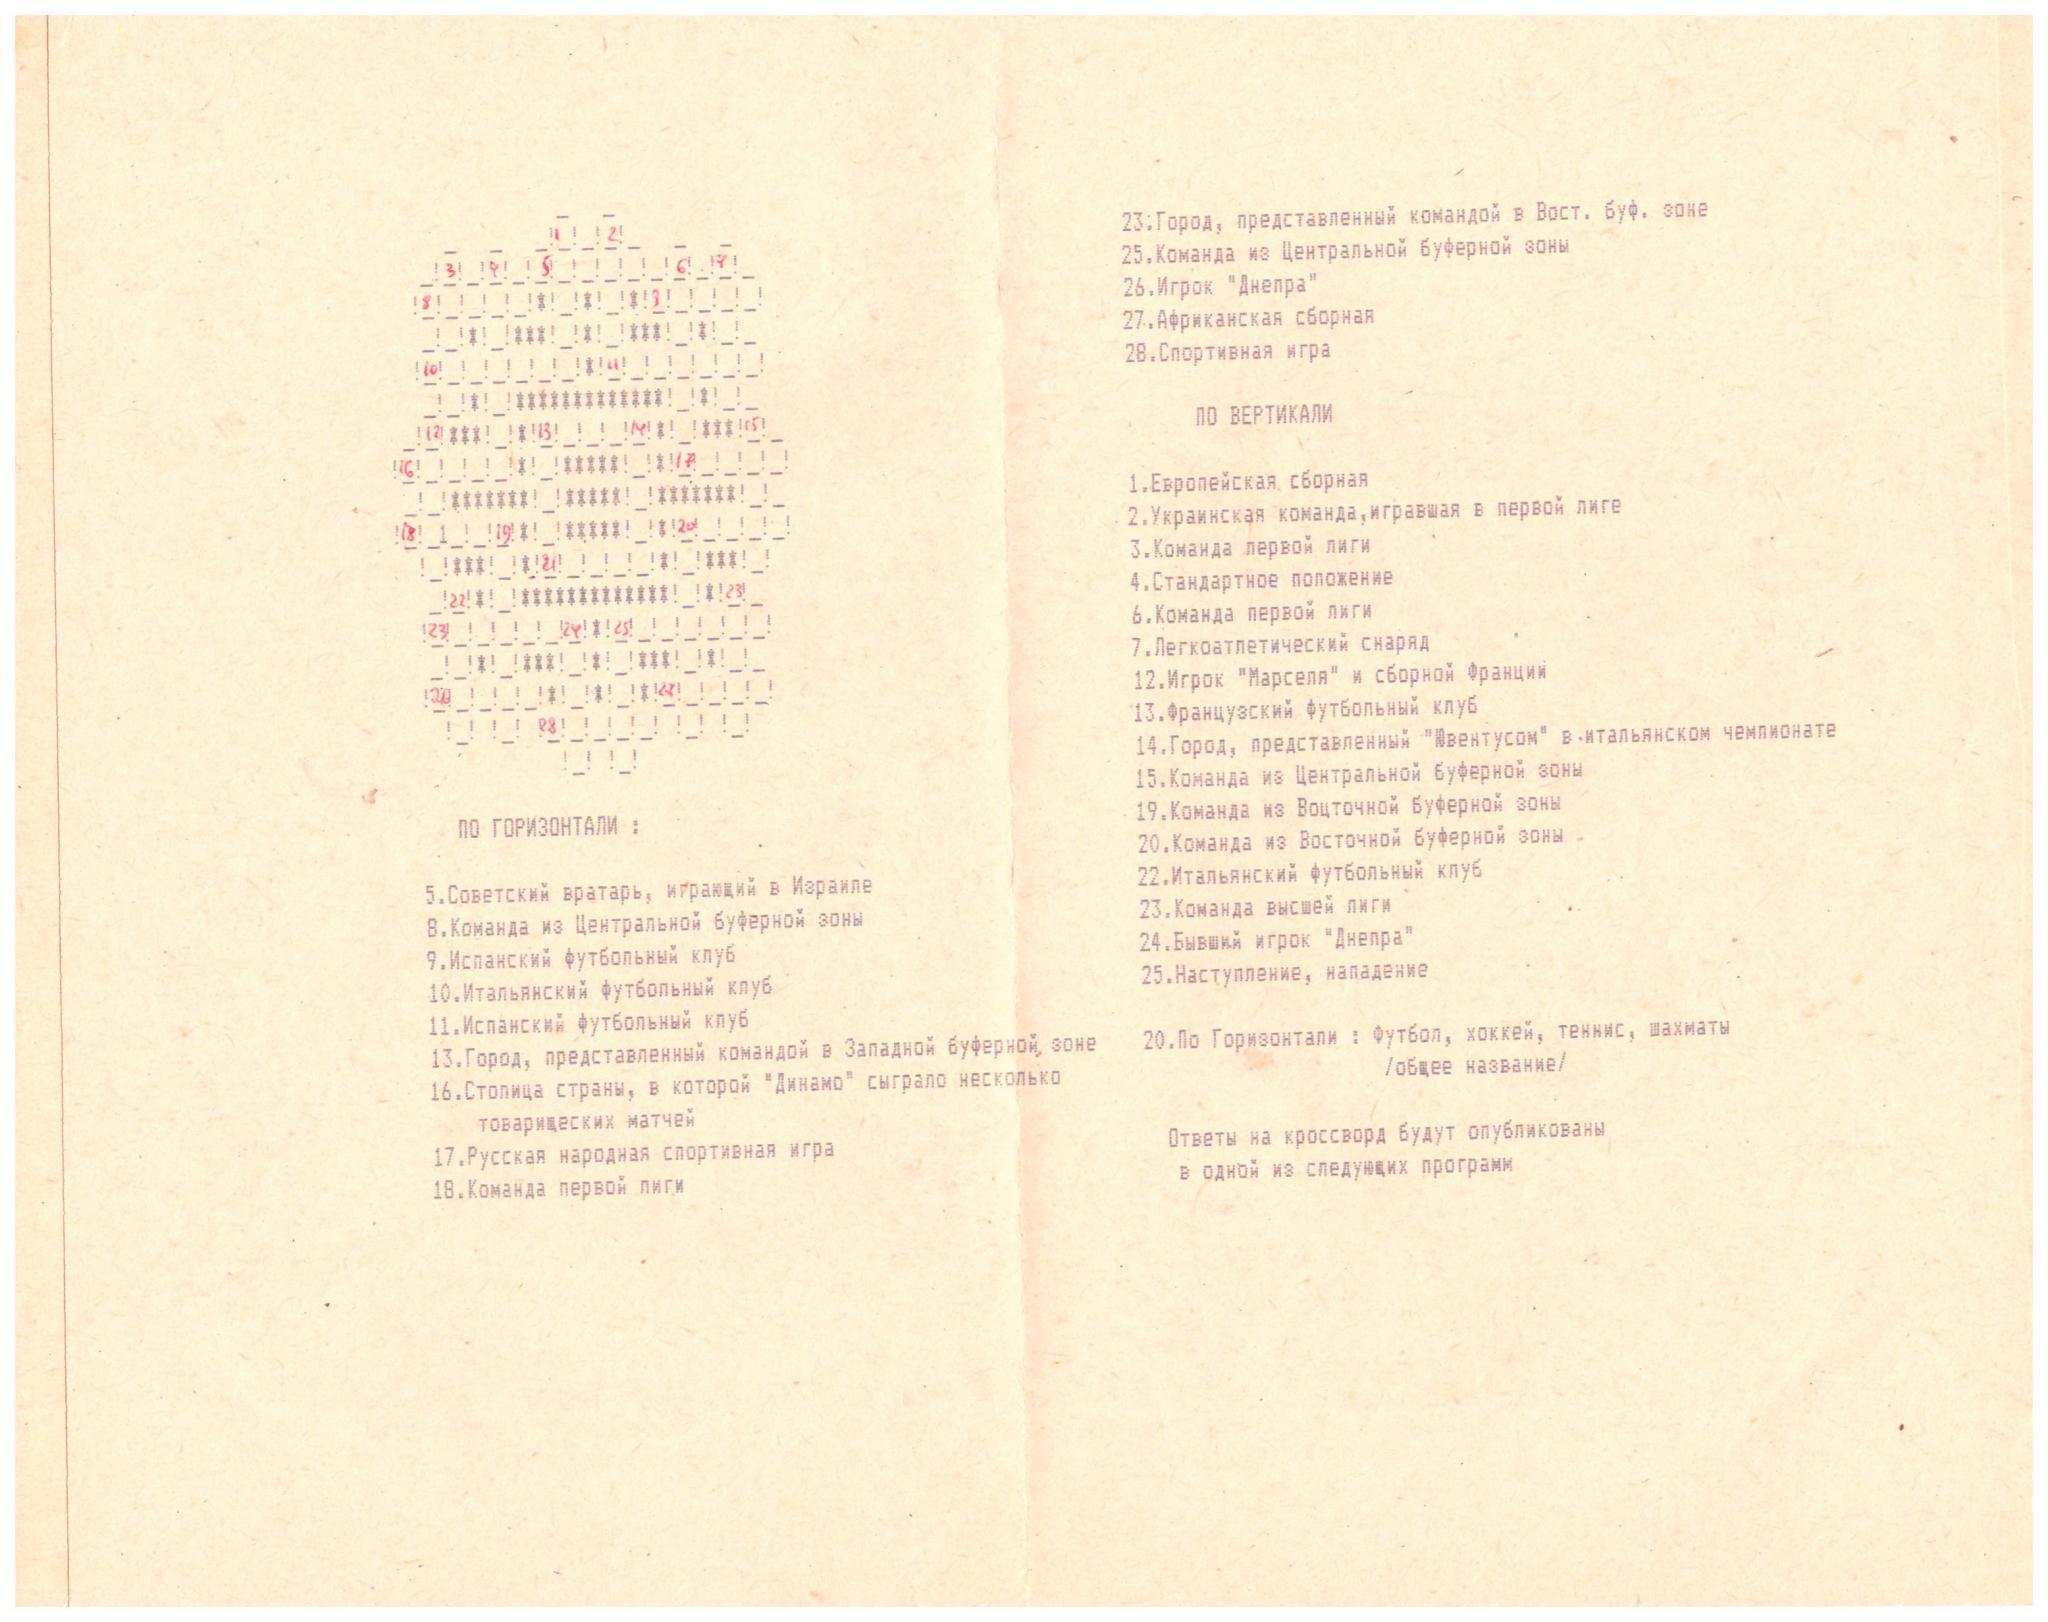 1 2
3 4 5 6 7
8 9
10 11
12 13 14 15
16 17
18 1 19 20
21
22 23
23 24 25
26 27
28
ПО ГОРИЗОНТАЛИ :
5.Советский вратарь, играющий в Израиле
8.Команда из Центральной буферной зоны
9.Испанский футбольный клуб
10.Итальянский футбольный клуб
11.Испанский футбольный клуб
13.Город, представленный командой в Западной буферной зоне
16.Столица страны, в которой "Динамо" сыграло несколько
товарищеских матчей
17.Русская народная спортивная игра
18.Команда первой лиги
23.Город, представленный командой в Вост. буф. зоне
25.Команда из Центральной буферной зоны
26.Игрок "Днепра"
27.Африканская сборная
28.Спортивная игра
ПО ВЕРТИКАЛИ
1.Европейская сборная
2.Украинская команда,игравшая в первой лиге
3.Команда первой лиги
4.Стандартное положение
6.Команда первой лиги
7.Легкоатлетический снаряд
12.Игрок "Марселя" и сборной Франции
13.Французский футбольный клуб
14.Город, представленный "Ювентусом" в итальянском чемпионате
15.Команда из Центральной буферной зоны
19.Команда из Воцточной буферной зоны
20.Команда из Восточной буферной зоны
22.Итальянский футбольный клуб
23.Команда высшей лиги
24.Бывший игрок "Днепра"
25.Наступление, нападение
20.По Горизонтали : Футбол, хоккей, теннис, шахматы
/общее название/
Ответы на кроссворд будут опубликованы
в одной из следующих программ